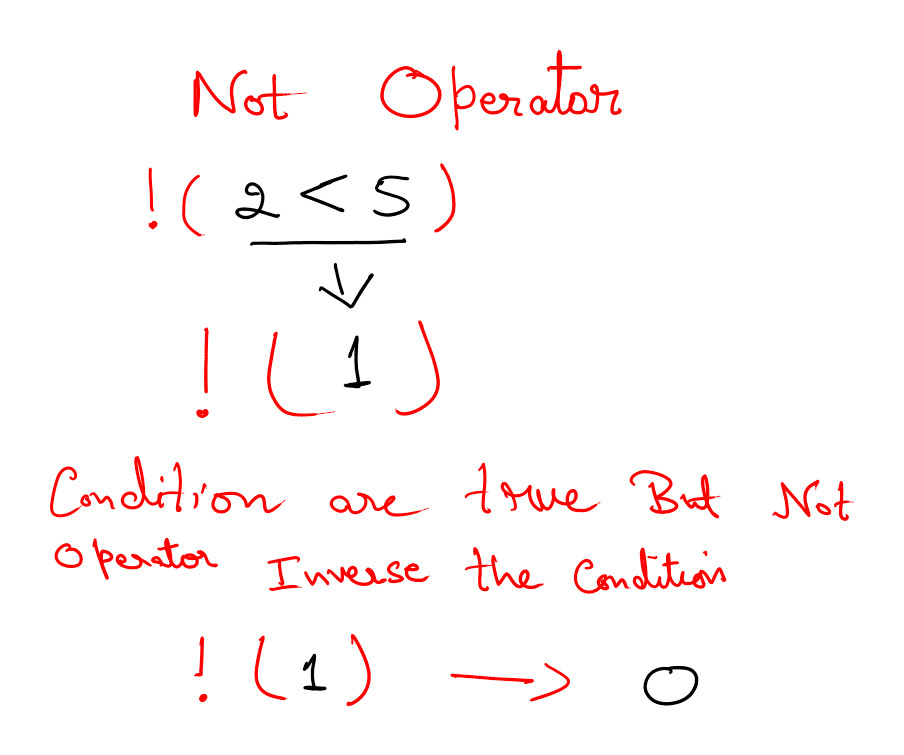 Not Operator
!( 2 < 5 )
! ( 1 )
Condition are true But Not
Operator Inverse the Condition
! ( 1 ) → 0